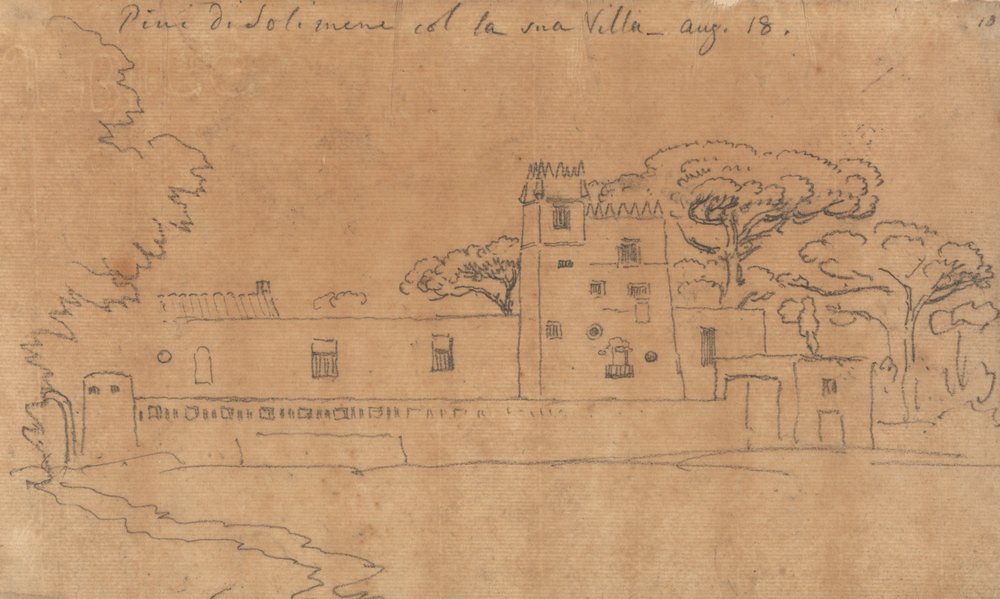 Pini di Solimene col la sua Villa_ aug. 18.